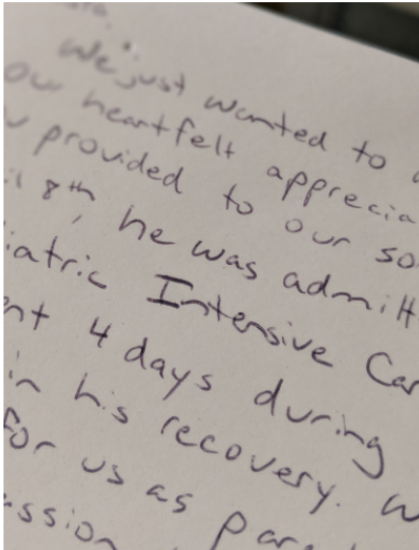 We just wanted to
our heartfelt apprecia
provided to our so
il 8th, he was admitt
iatric Intensive Car
nt 4 days during
in his recovery. W
for us as par
ssion